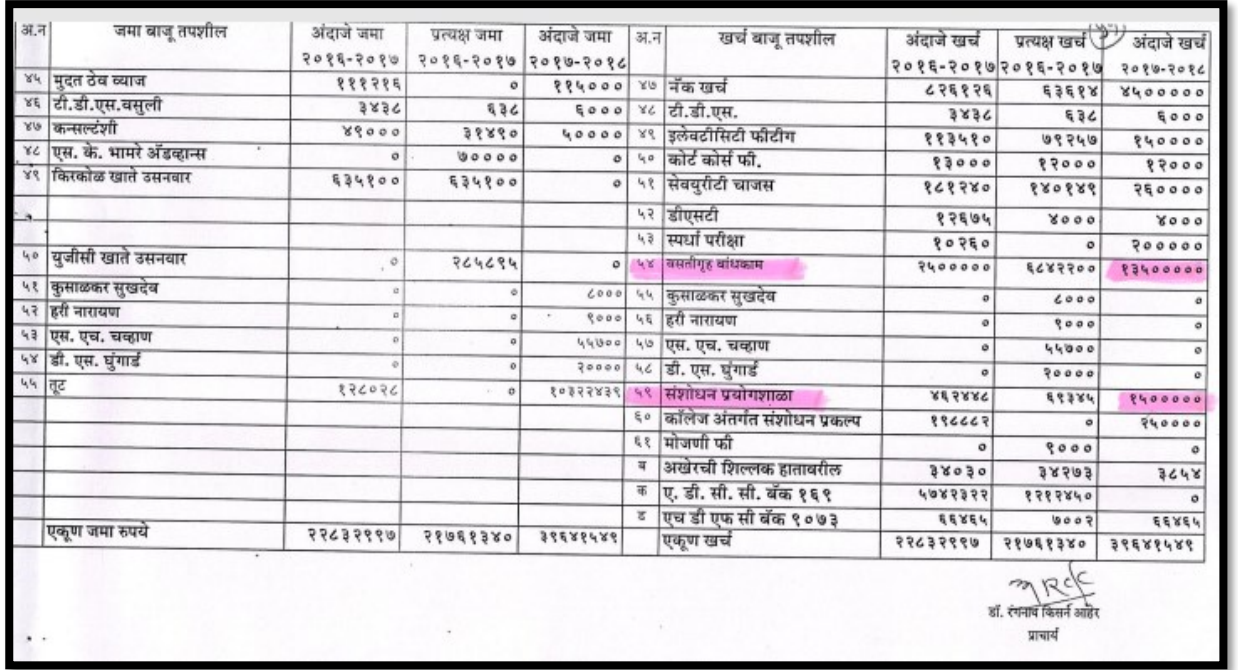 अ.न जमा बाजू तपशील अंदाजे जमा प्रत्यक्ष जमा अंदाजे जमा अ.न खर्च बाजू तपशील अंदाजे खर्च प्रत्यक्ष खर्च अंदाजे खर्च
२०१६-२०१७ २०१६-२०१७ २०१७-२०१८ २०१६-२०१७ २०१६-२०१७ २०१७-२०१८
४५ मुदत ठेव व्याज १११२१६ ० ११५००० ४७ नॅक खर्च ८२६१२६ ६३६१४ ४५०००००
४६ टी.डी.एस.वसुली ३४३८ ६३८ ६००० ४८ टी.डी.एस. ३४३८ ६३८ ६०००
४७ कन्सल्टंशी ४९००० ३१४९० ५०००० ४९ इलेक्टीसिटी फीटीग ११३५१० ७९२५७ १५००००
४८ एस. के. भामरे अ‍ॅडव्हान्स ० ७०००० ० ५० कोर्ट कोर्स फी. १३००० १२००० १२०००
४९ किरकोळ खाते उसनवार ६३५१०० ६३५१०० ० ५१ सेक्युरीटी चाजस १८१२४० १४०१४९ २६००००
५२ डीएसटी १२६७५ ४००० ४०००
५३ स्पर्धा परीक्षा १०२६० ० २०००००
५० युजीसी खाते उसनवार ० २८५८९५ ० ५४ वसतीगृह बांधकाम २५००००० ६८४२२०० १३५०००००
५१ कुसाळकर सुखदेव ० ० ८००० ५५ कुसाळकर सुखदेव ० ८००० ०
५२ हरी नारायण ० ० ९००० ५६ हरी नारायण ० ९००० ०
५३ एस. एच. चव्हाण ० ० ५५७०० ५७ एस. एच. चव्हाण ० ५५७०० ०
५४ डी. एस. घुंगार्ड ० ० २०००० ५८ डी. एस. घुंगार्ड ० २०००० ०
५५ तूट १२८०२८ ० १०३२२४३९ ५९ संशोधन प्रयोगशाळा ४६२४४८ ६९३४५ १५०००००
६० कॉलेज अंतर्गत संशोधन प्रकल्प १९८८८२ ० २५००००
६१ मोजणी फी ० ९००० ०
ब अखेरची शिल्लक हातावरील ३४०३० ३४२७३ ३८५४
क ए. डी. सी. सी. बॅक १६९ ५७४२३२२ १२१२४५० ०
ड एच डी एफ सी बॅक ९०७३ ६६४६५ ७००२ ६६४६५
एकूण जमा रुपये २२८३२९९७ २१७६१३४० ३९६४१५४९ एकूण खर्च २२८३२९९७ २१७६१३४० ३९६४१५४९
डॉ. रंगनाथ किसन आहेर
प्राचार्य